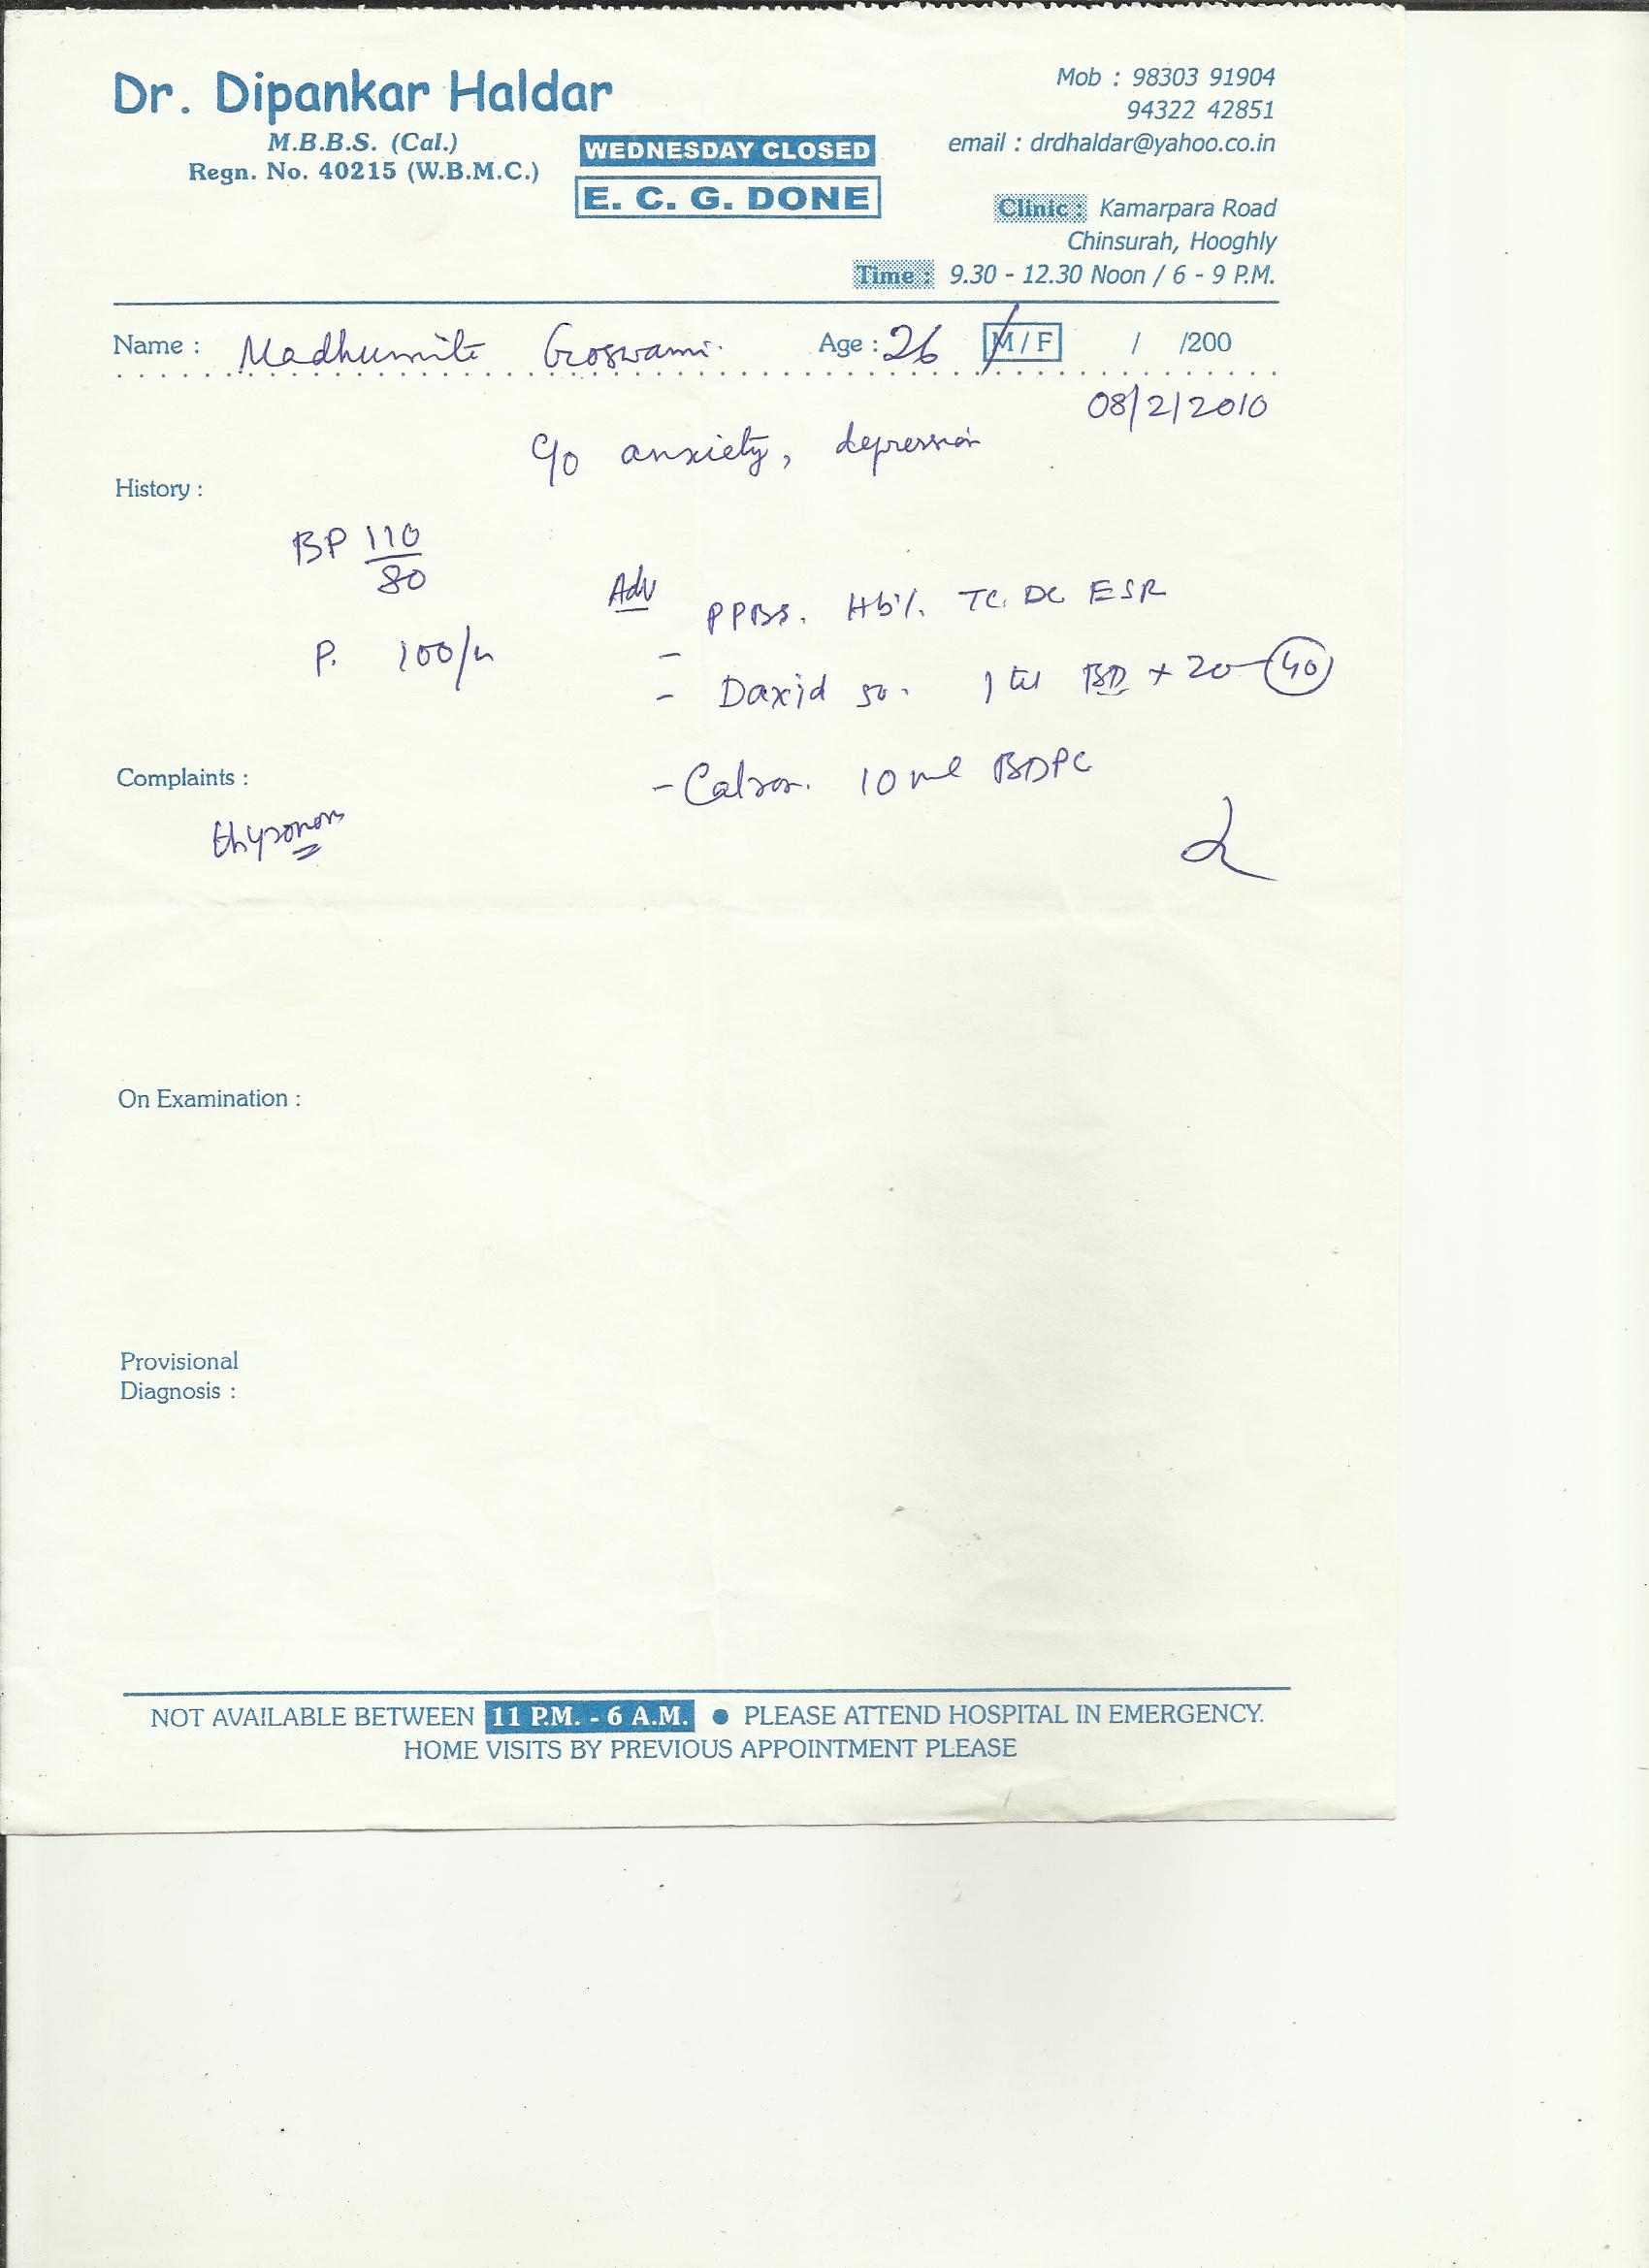 Dr. Dipankar Haldar
M.B.B.S. (Cal.)
Regn. No. 40215 (W.B.M.C.)
WEDNESDAY CLOSED
E. C. G. DONE
Mob : 98303 91904
94322 42851
email : drdhaldar@yahoo.co.in
Clinic : Kamarpara Road
Chinsurah, Hooghly
Time : 9.30 - 12.30 Noon / 6 - 9 P.M.
Name : Madhumita Goswami. Age : 26 M / F / /200
08/2/2010
c/o anxiety, depression
History :
BP 110/80
Adv PPBS. Hb%. TC. DC ESR
P. 100/m
- Daxid 50. 1 tab BD × 20 - 40
Complaints :
- 10 ml BDPC
On Examination :
Provisional
Diagnosis :
NOT AVAILABLE BETWEEN 11 P.M. - 6 A.M. ● PLEASE ATTEND HOSPITAL IN EMERGENCY.
HOME VISITS BY PREVIOUS APPOINTMENT PLEASE